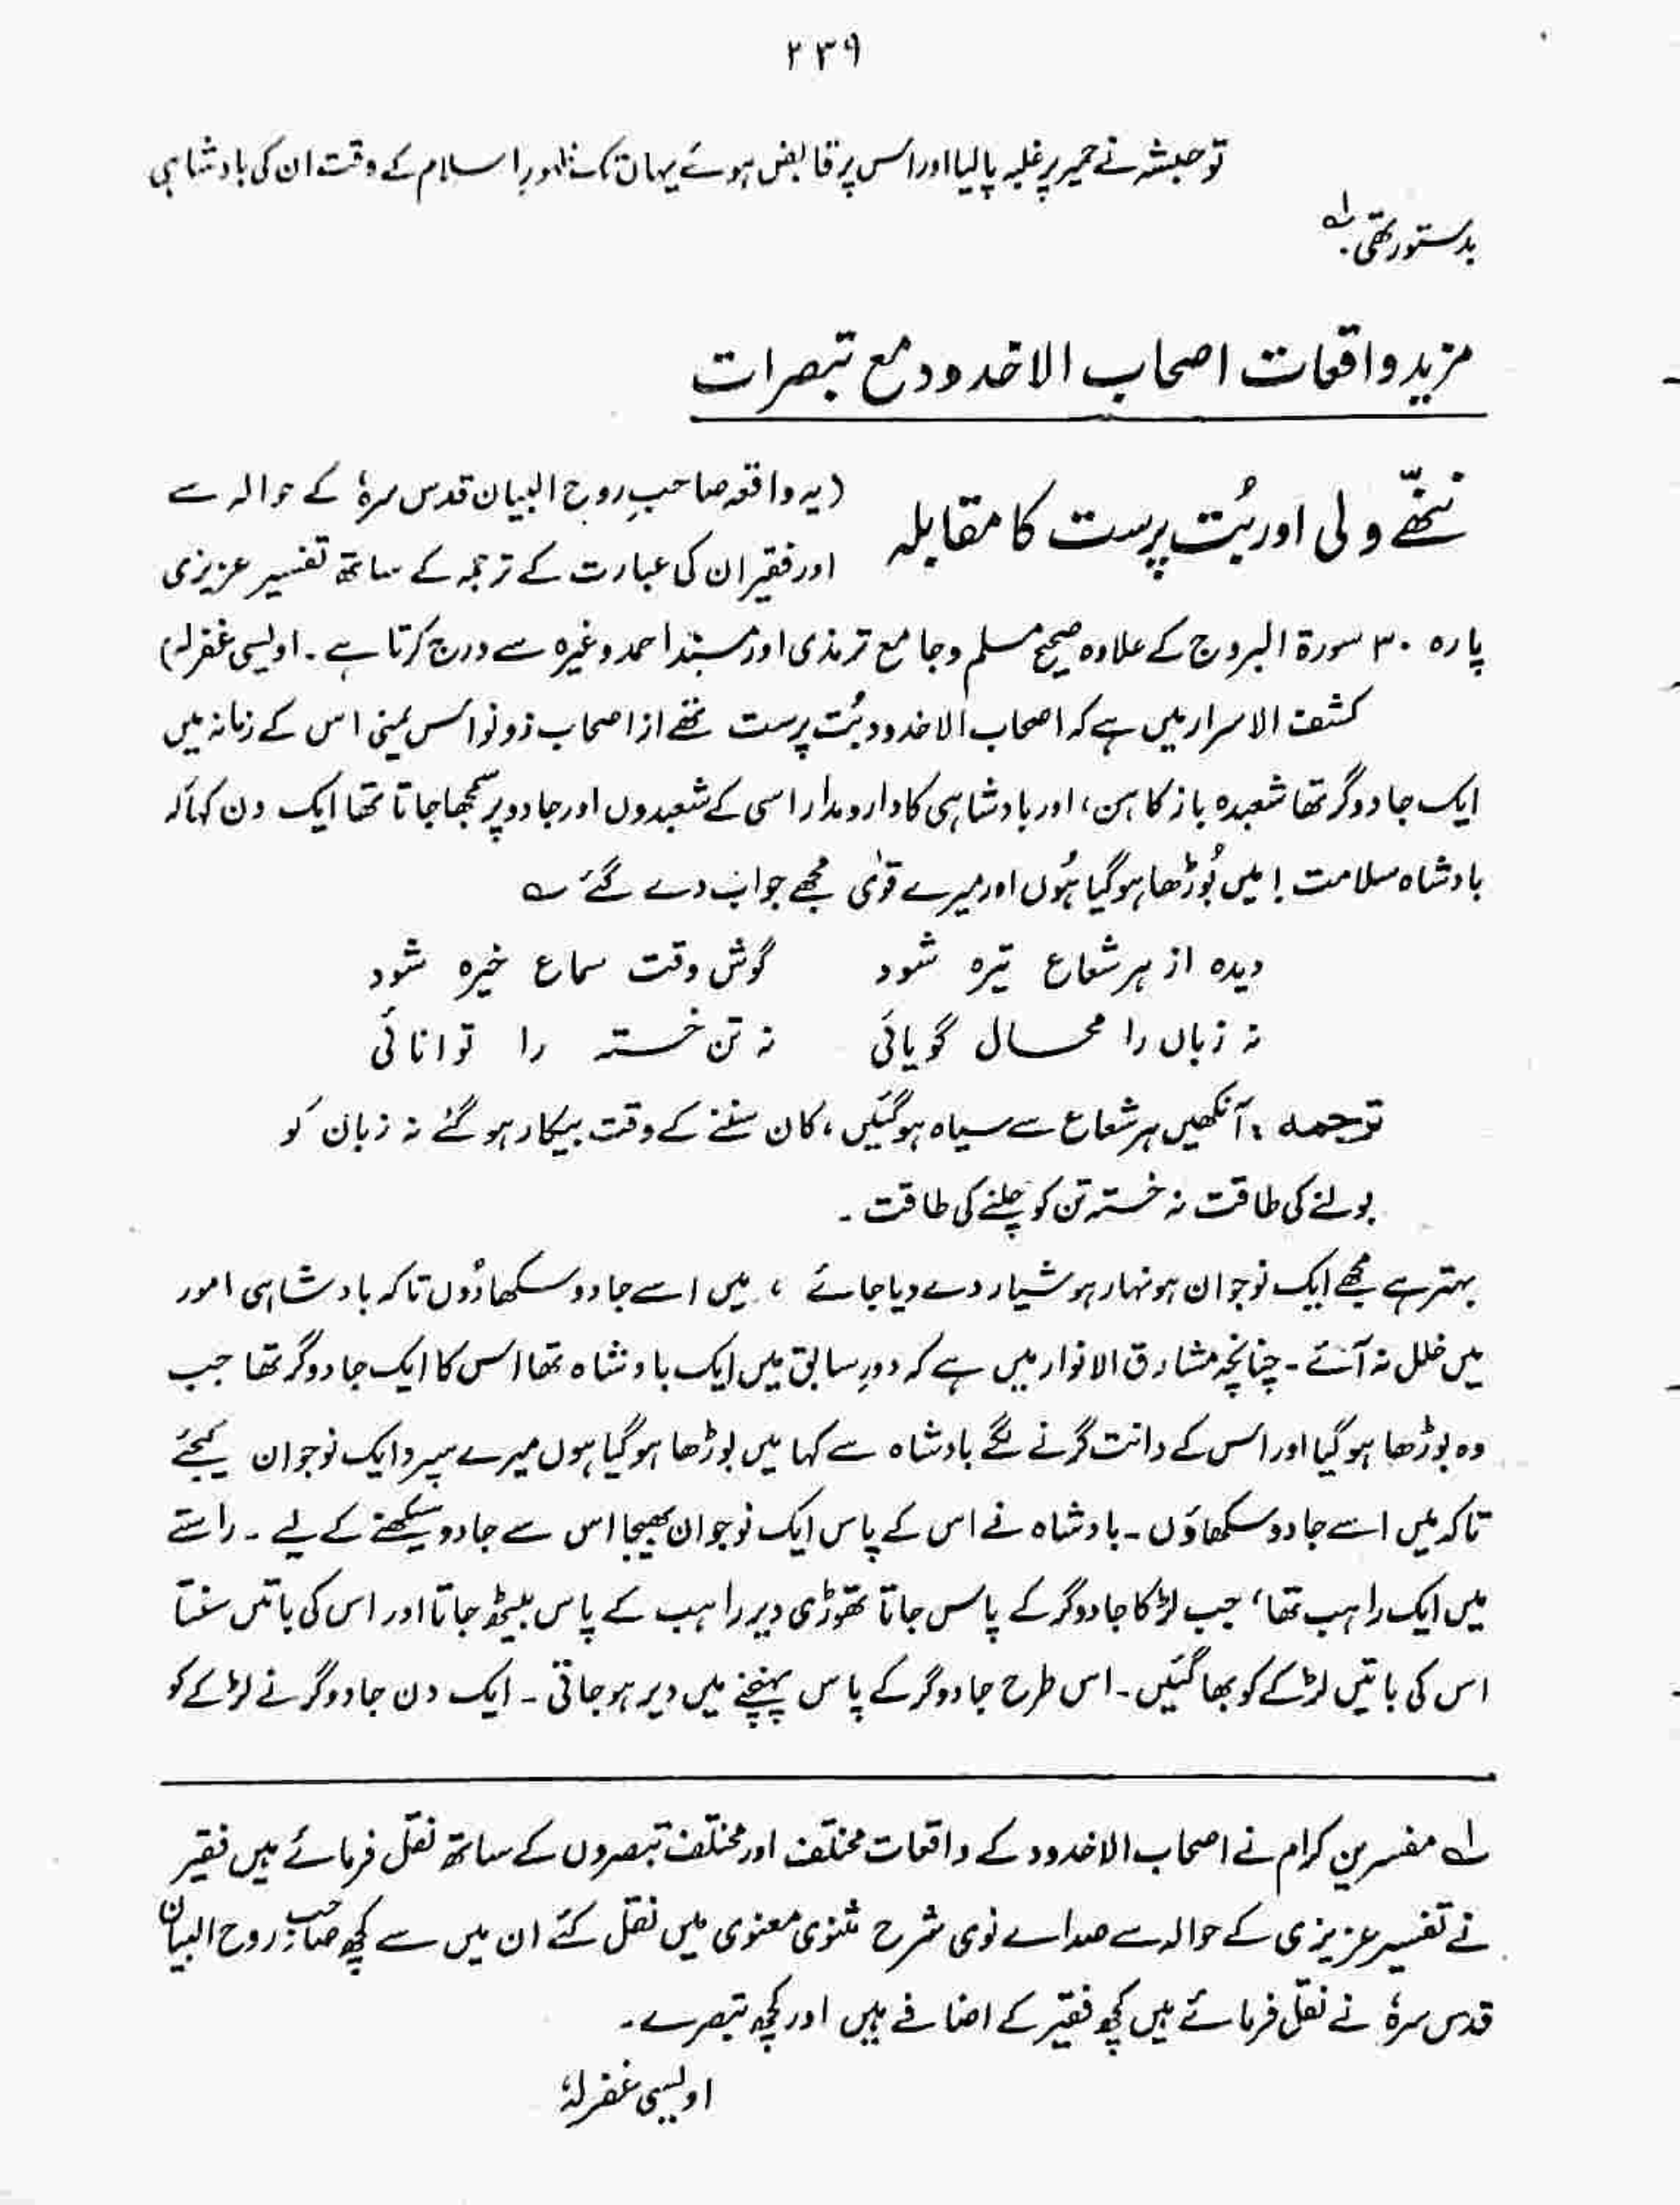 ۲۳۹
تو حبشہ نے حمیر پر غلبہ پا لیا اور اس پر قابض ہوئے یہاں تک ظہورِ اسلام کے وقت ان کی بادشاہی
بدستور تھی۔ لہ
مزید واقعات اصحاب الاخدود مع تبصرات
ننھّے ولی اور بُت پرست کا مقابلہ
(یہ واقعہ صاحبِ روح البیان قدس سرہٗ کے حوالہ سے
اور فقیر ان کی عبارت کے ترجمہ کے ساتھ تفسیر عزیزی
پارہ ۳۰ سورۃ البروج کے علاوہ صحیح مسلم و جامع ترمذی اور مسند احمد وغیرہ سے درج کرتا ہے۔ اویسی غفرلہٗ)
کشف الاسرار میں ہے کہ اصحاب الاخدود بُت پرست تھے از اصحاب ذونواس یمنی اس کے زمانہ میں
ایک جادوگر تھا شعبدہ باز کاہن، اور بادشاہی کا دارومدار اسی کے شعبدوں اور جادو پر سمجھا جاتا تھا ایک دن کہا کہ
بادشاہ سلامت! میں بُوڑھا ہو گیا ہُوں اور میرے قوٰی مجھے جواب دے گئے ؎
دیدہ از ہر شعاع تیرہ شود گوش وقت سماع خیرہ شود
نہ زباں را مجال گویائی نہ تن خستہ را توانائی
ترجمہ: آنکھیں ہر شعاع سے سیاہ ہو گئیں، کان سننے کے وقت بیکار ہو گئے نہ زبان کو
بولنے کی طاقت نہ خستہ تن کو چلنے کی طاقت۔
بہتر ہے مجھے ایک نوجوان ہونہار ہوشیار دے دیا جائے، میں اسے جادو سکھا دُوں تاکہ بادشاہی امور
میں خلل نہ آئے۔ چنانچہ مشارق الانوار میں ہے کہ دورِ سابق میں ایک بادشاہ تھا اس کا ایک جادوگر تھا جب
وہ بوڑھا ہو گیا اور اس کے دانت گرنے لگے بادشاہ سے کہا میں بوڑھا ہو گیا ہوں میرے سپرد ایک نوجوان کیجئے
تاکہ میں اسے جادو سکھاؤں۔ بادشاہ نے اس کے پاس ایک نوجوان بھیجا اس سے جادو سیکھنے کے لیے۔ راستے
میں ایک راہب تھا، جب لڑکا جادوگر کے پاس جاتا تھوڑی دیر راہب کے پاس بیٹھ جاتا اور اس کی باتیں سنتا
اس کی باتیں لڑکے کو بھا گئیں۔ اس طرح جادوگر کے پاس پہنچنے میں دیر ہو جاتی۔ ایک دن جادوگر نے لڑکے کو
لہ مفسرین کرام نے اصحاب الاخدود کے واقعات مختلف اور مختلف تبصروں کے ساتھ نقل فرمائے ہیں فقیر
نے تفسیر عزیزی کے حوالہ سے صدائے نوی شرح مثنوی معنوی میں نقل کئے ان میں سے کچھ صاحبِ روح البیان
قدس سرہٗ نے نقل فرمائے ہیں کچھ فقیر کے اضافے ہیں اور کچھ تبصرے۔
اویسی غفرلہٗ